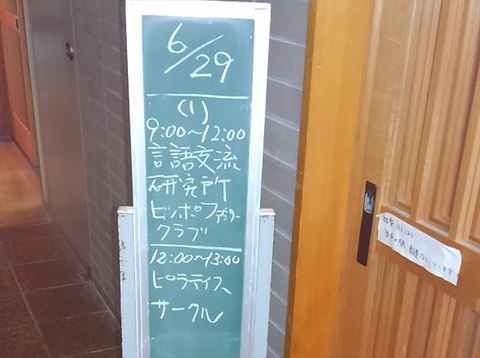 6/29
(1)
9:00~12:00
言語交流
研究所
ヒッポファミリー
クラブ
12:00~13:00
ピラティス
サークル